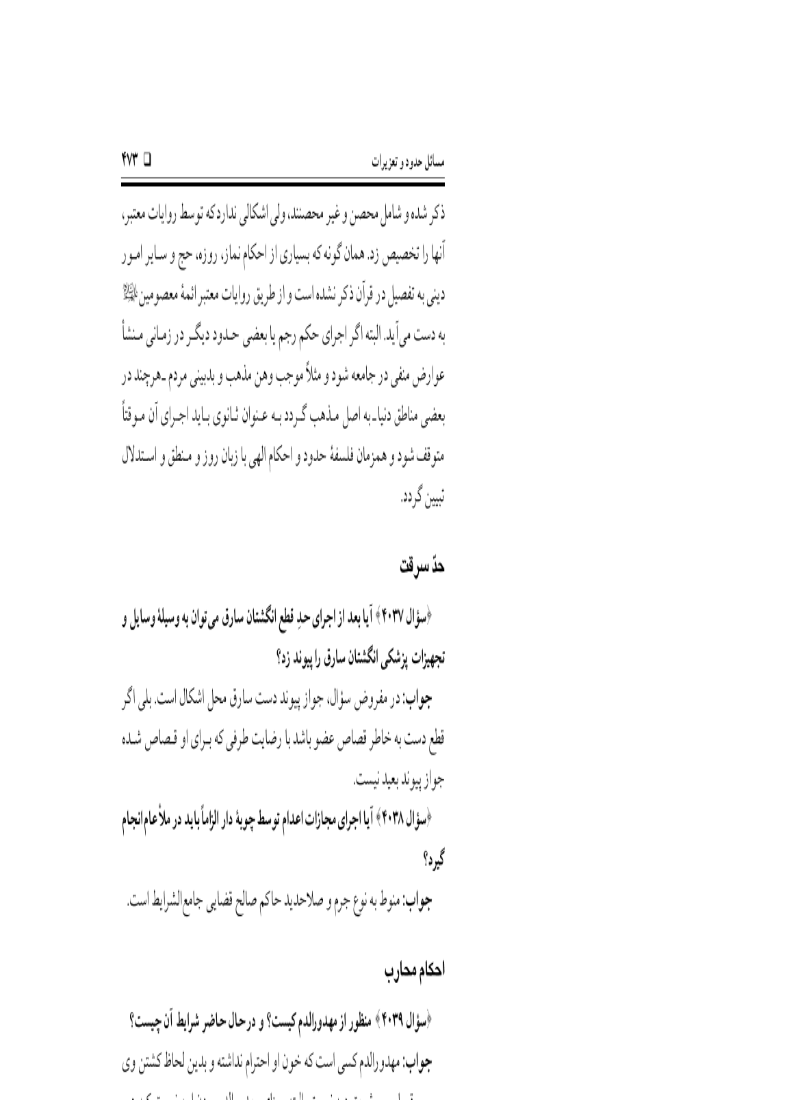 مسائل حدود و تعزیرات ❑ ۴۷۳
ذکر شده و شامل محصن و غیر محصنند، ولی اشکالی ندارد که توسط روایات معتبر،
آنها را تخصیص زد. همان گونه که بسیاری از احکام نماز، روزه، حج و سایر امور
دینی به تفصیل در قرآن ذکر نشده است و از طریق روایات معتبر ائمهٔ معصومین
به دست می‌آید. البته اگر اجرای حکم رجم یا بعضی حدود دیگر در زمانی منشأ
عوارض منفی در جامعه شود و مثلاً موجب وهن مذهب و بدبینی مردم ـ هرچند در
بعضی مناطق دنیا ـ به اصل مذهب گردد به عنوان ثانوی باید اجرای آن موقتاً
متوقف شود و همزمان فلسفهٔ حدود و احکام الهی با زبان روز و منطق و استدلال
تبیین گردد.
حدّ سرقت
﴿سؤال ۴۰۳۷﴾ آیا بعد از اجرای حدِ قطع انگشتان سارق می‌توان به وسیلهٔ وسایل و
تجهیزات پزشکی انگشتان سارق را پیوند زد؟
جواب: در مفروض سؤال، جواز پیوند دست سارق محل اشکال است. بلی اگر
قطع دست به خاطر قصاص عضو باشد با رضایت طرفی که برای او قصاص شده
جواز پیوند بعید نیست.
﴿سؤال ۴۰۳۸﴾ آیا اجرای مجازات اعدام توسط چوبهٔ دار الزاماً باید در ملأ عام انجام
گیرد؟
جواب: منوط به نوع جرم و صلاحدید حاکم صالح قضایی جامع‌الشرایط است.
احکام محارب
﴿سؤال ۴۰۳۹﴾ منظور از مهدورالدم کیست؟ و در حال حاضر شرایط آن چیست؟
جواب: مهدورالدم کسی است که خون او احترام نداشته و بدین لحاظ کشتن وی